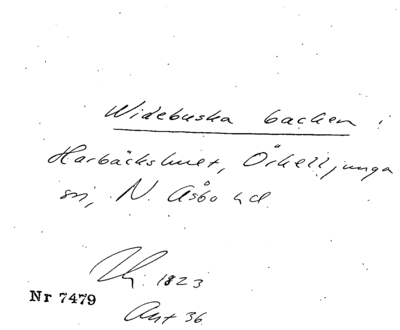 Widebuska backen i
Harbäckshult, Örkelljunga
sn, N. Åsbo hd.
1823
Nr 7479
Akt 36